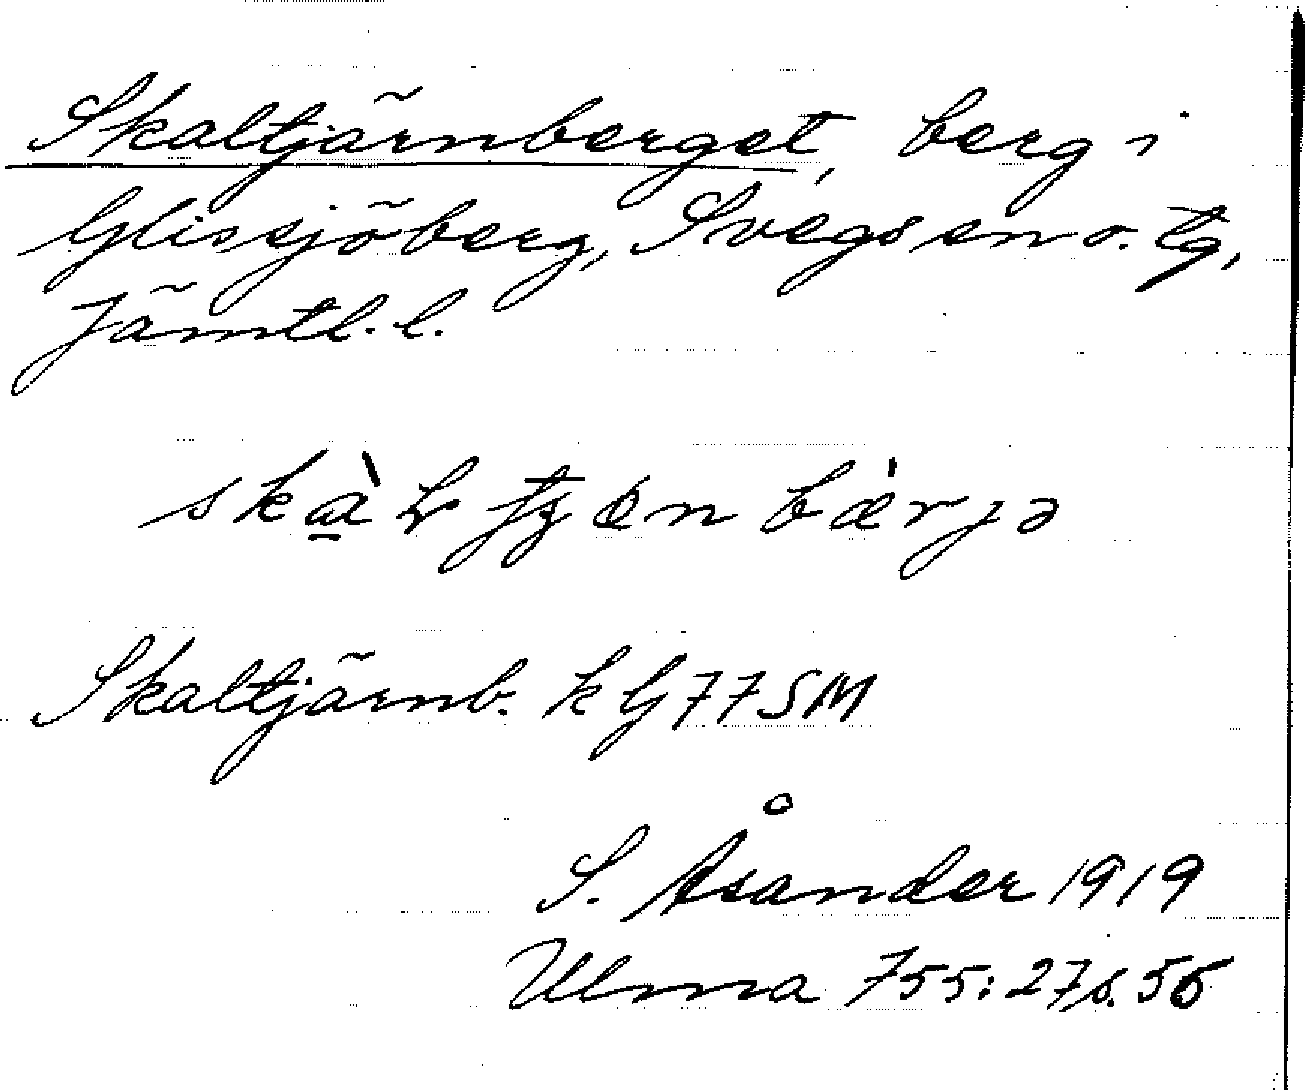 Skaltjärnberget, berg i
Glissjöberg, Svegs sn o. tg,
Jämtl. l.
Skaltjärnb. k G 77 SM
S. Åsander 1919
Ulma 755:27 s. 56